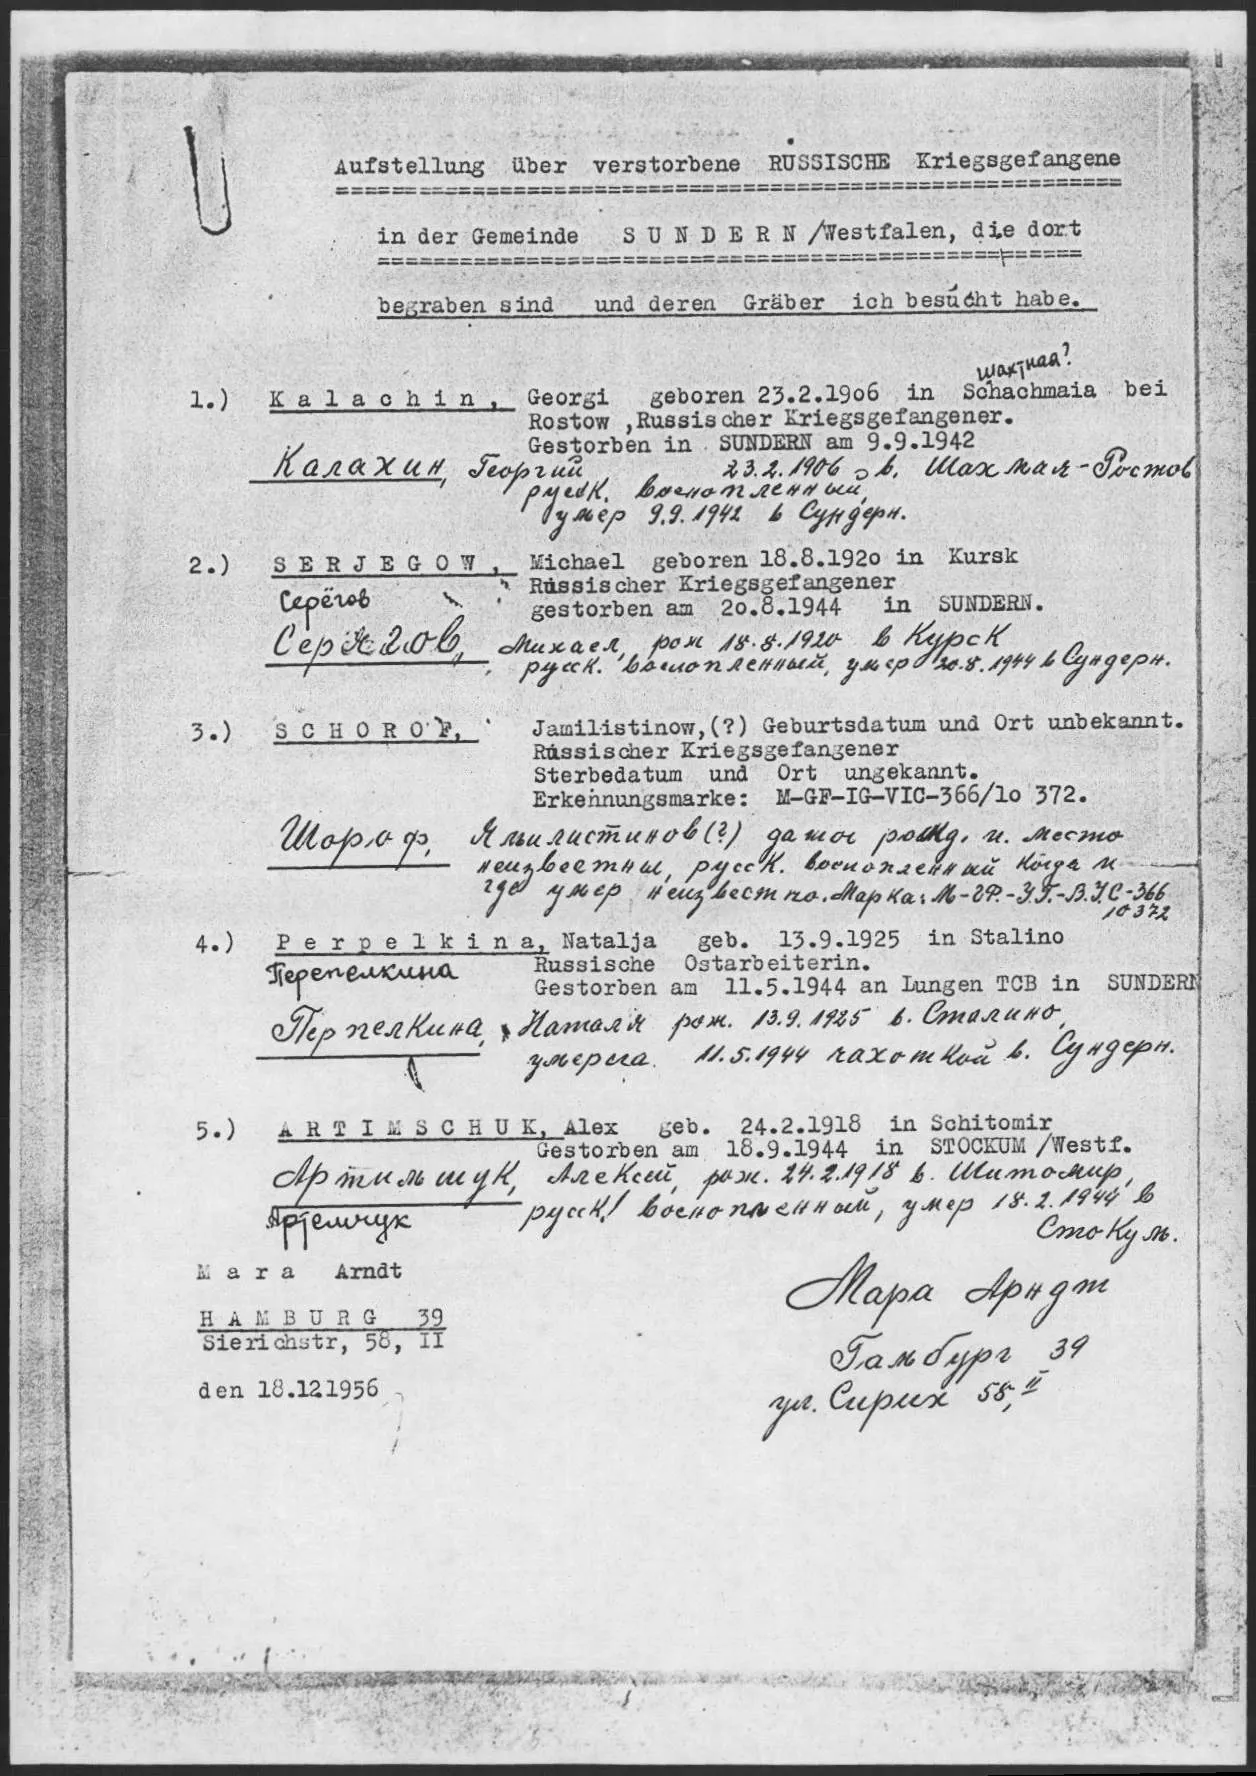 Aufstellung über verstorbene RUSSISCHE Kriegsgefangene
in der Gemeinde S U N D E R N /Westfalen, die dort
begraben sind und deren Gräber ich besucht habe.
шахтная?
1.) K a l a c h i n , Georgi geboren 23.2.19o6 in Schachmaia bei
Rostow ,Russischer Kriegsgefangener.
Gestorben in SUNDERN am 9.9.1942
Калахин, Георгий 23.2.1906 в. Шахмая-Ростов
русск. военопленный,
умер 9.9.1942 в Сундерн.
2.) S E R J E G O W , Michael geboren 18.8.192o in Kursk
Russischer Kriegsgefangener
Серёгов
gestorben am 2o.8.1944 in SUNDERN.
Сержегов, Михаел, рож 18.8.1920 в Курск
русск. военопленный, умер 20.8.1944 в Сундерн.
3.) S C H O R O F, Jamilistinow,(?) Geburtsdatum und Ort unbekannt.
Russischer Kriegsgefangener
Sterbedatum und Ort ungekannt.
Erkennungsmarke: M-GF-IG-VIC-366/1o 372.
Шороф, Ямилистинов(?) датое рожд. и. место
неизвестны, русск. военопленный когда и
где умер неизвестно. Марка: М-ГФ.-У.Г.-В.У.С-366
10372
4.) P e r p e l k i n a, Natalja geb. 13.9.1925 in Stalino
Russische Ostarbeiterin.
Перепелкина
Gestorben am 11.5.1944 an Lungen TCB in SUNDERN
Перпелкина, Наталя рож. 13.9.1925 в. Сталино,
умерега 11.5.1944 чахоткой в. Сундерн.
5.) A R T I M S C H U K, Alex geb. 24.2.1918 in Schitomir
Gestorben am 18.9.1944 in STOCKUM /Westf.
Артимшук, Алексей, рож. 24.2.1918 в. Шитомир,
Артемчук
русск! военопленный, умер 18.2.1944 в
Стокум.
M a r a Arndt
Мара Арндт
H A M B U R G 39
Sierichstr, 58, II
Гамбург 39
den 18.121956
ул. Сирих 58, II